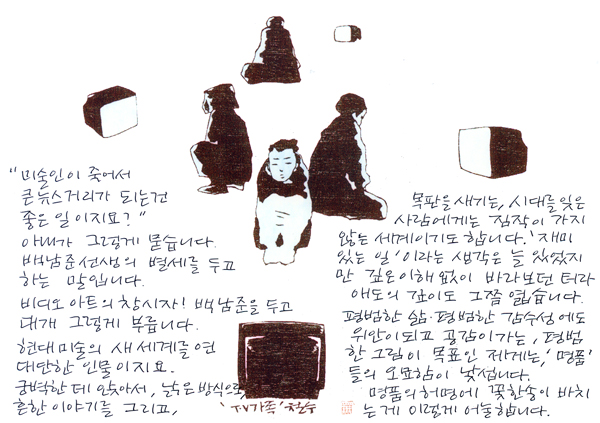 "미술인이 죽어서
큰 뉴스거리가 되는건
좋은 일이지요?"
아내가 그렇게 묻습니다.
백남준선생의 별세를 두고
하는 말입니다.
비디오 아트의 창시자! 백남준을 두고
대개 그렇게 부릅니다.
현대미술의 새 세계를 연
대단한 인물이지요.
궁벽한 데 앉아서, 낡은 방식으로,
흔한 이야기를 그리고,
목판을 새기는, 시대를 잊은
사람에게는 짐작이 가지
않는 세계이기도 합니다. '재미
있는 일' 이라는 생각은 늘 있었지
만 깊은 이해 없이 바라보던 터라
애도의 깊이도 그쯤 얇습니다.
평범한 삶·평범한 감수성에도
위안이 되고 공감이 가는, 평범
한 그림이 목표인 저에게는, '명품'
들의 오묘함이 낯섭니다.
명품의 허명에 꽃 한송이 바치
는게 이렇게 어눌합니다.
'TV가족' 철수